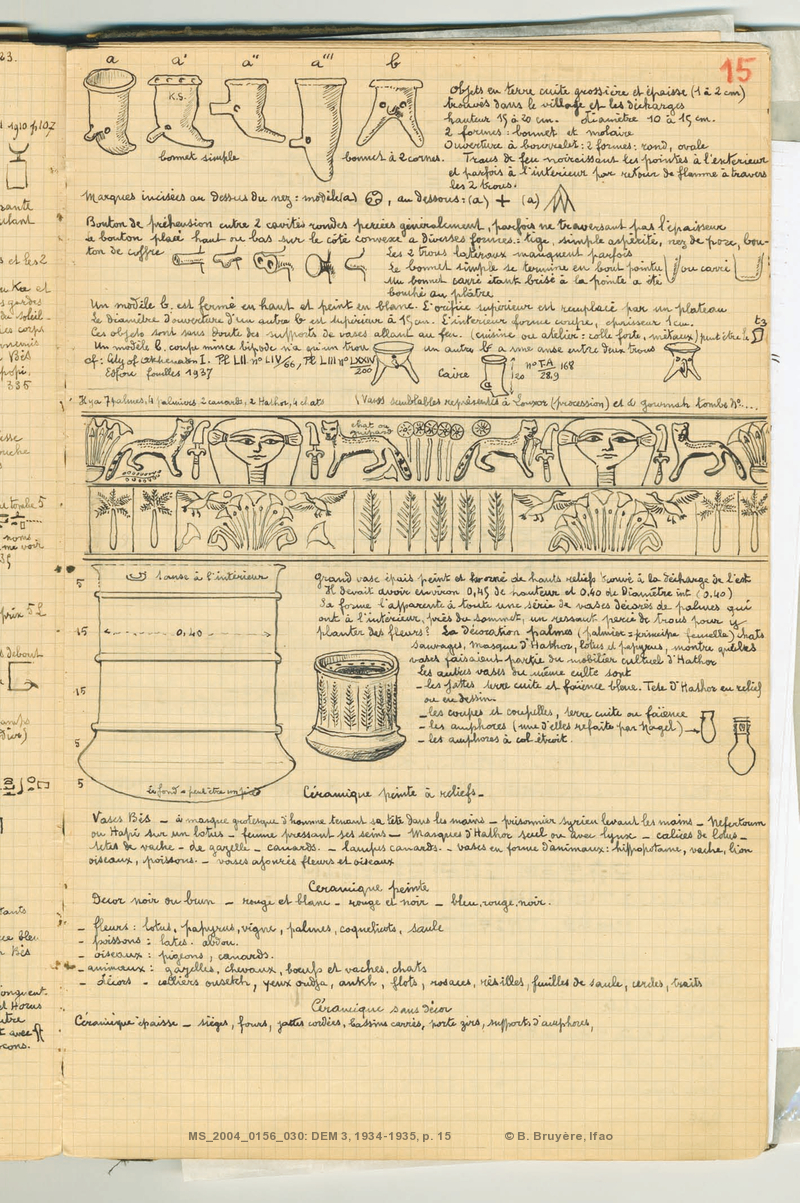 15
a a' a'' a''' b
K.S.
bonnet simple bonnet à 2 cornes.
Objets en terre cuite grossière et épaisse (1 à 2 cm)
trouvés dans le village et les décharges
hauteur 15 à 20 cm. diamètre 10 à 15 cm.
2 formes : bonnet et molaire
Ouverture à bourrelet : 2 formes : rond, ovale
Traces de feu noircissant les pointes à l'extérieur
et parfois à l'intérieur par retour de flamme à travers
les 2 trous.
Marques incisées au dessus du nez : modèle (a) , au dessous : (a) + (a)
Bouton de préhension entre 2 cavités rondes percées généralement, parfois ne traversant pas l'épaisseur
Le bouton placé haut ou bas sur le côté convexe a diverses formes : tige, simple aspérité, nez de , bou-
ton de coffre
Les 2 trous latéraux manquent parfois
Le bonnet simple se termine en bout pointu ou carré
Un bonnet carré étant brisé à la pointe a été
bouché au plâtre
Un modèle b. est fermé en haut et peint en blanc. L'orifice supérieur est remplacé par un plateau
Le diamètre d'ouverture d'un autre b est supérieur à 15 cm. L'intérieur forme coupe, épaisseur 1 cm.
Ces objets sont sans doute des supports de vases allant au feu. (cuisine ou atelier : colle forte, métaux) peut être le
Un modèle b. coupe mince bipode n'a qu'un trou un autre b a une anse entre deux trous
cf : City of Akhenaton I. Pl. LII n° LIV/66, Pl LIII n° LXXIV/200
Edfou fouilles 1937
Caire 20 n° T.A/28.9 168
Il y a 7 palmes, 4 palmiers 2 canards, 2 Hathor, 4 chats Vases semblables représentés à Louxor (procession) et à Gournah tombe N°....
chat ou guépard
1 anse à l'intérieur
5
15
0,40
15
5
5
Le fond a peut être un pied
Grand vase épais peint et orné de hauts reliefs trouvé à la décharge de l'est
Il devait avoir environ 0,45 de hauteur et 0.40 de Diamètre int (0.40)
Sa forme l'apparente à toute une série de vases décorés de palmes qui
ont à l'intérieur, près du sommet, un ressaut percé de trous pour y
planter des fleurs ? La décoration palmes (palmier = principe femelle) chats
sauvages, masque d'Hathor, lotus et papyrus, montre quelles
vases faisaient partie du mobilier cultuel d'Hathor
Les autres vases du même culte sont
- les jattes terre cuite et faïence bleue. Tete d'Hathor en relief
ou en dessin.
- les coupes et coupelles, terre cuite ou faïence
- les amphores (une d'elles refaite par Nagel)
- les amphores à col étroit.
Céramique peinte à reliefs -
Vases Bès - à masque grotesque d'homme tenant sa tête dans les mains - prisonnier syrien levant les mains - Nefertoum
ou Hapi sur un lotus - femme pressant ses seins - Masques d'Hathor seul ou avec lynx - calices de lotus -
têtes de vache - de gazelle - canards. - lampes canards. - vases en forme d'animaux : hippopotame, vache, lion
oiseaux, poissons. - vases ajourés fleurs et oiseaux
Ceramique peinte
Decor noir ou brun - rouge et blanc - rouge et noir - bleu, rouge, noir.
- fleurs : lotus, papyrus, vigne, palmes, coquelicots, saule
- poissons : lates. abdou.
- oiseaux : pigeons, canards.
- animaux : gazelles, chevaux, bœufs et vaches, chats
- décors - colliers ousekh, yeux oudja, ankh, flots, rosaces, résilles, feuilles de saule, cercles, traits
Céramique sans décor
Céramique épaisse - sièges, fours, jattes cordées, bassins carrés, porte zirs, supports d'amphores,
MS_2004_0156_030: DEM 3, 1934-1935, p. 15 © B. Bruyère, Ifao